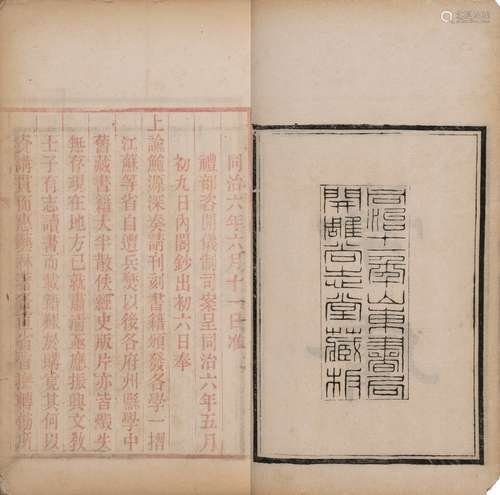 同治十一年山東書局
開雕尚志堂藏板
同治六年六月十一日准
禮部咨開儀制司案呈同治六年五月
初九日內閣鈔出初六日奉
上諭鮑源深奏請刊刻書籍頒發各學一摺
江蘇等省自遭兵燹以後各府州縣學中
舊藏書籍大半散佚經史版片亦皆燬失
無存現在地方已就肅清亟應振興文教
士子有志讀書而載籍難於購覓其何以
資講貫而惠藝林著各直省督撫轉飭所